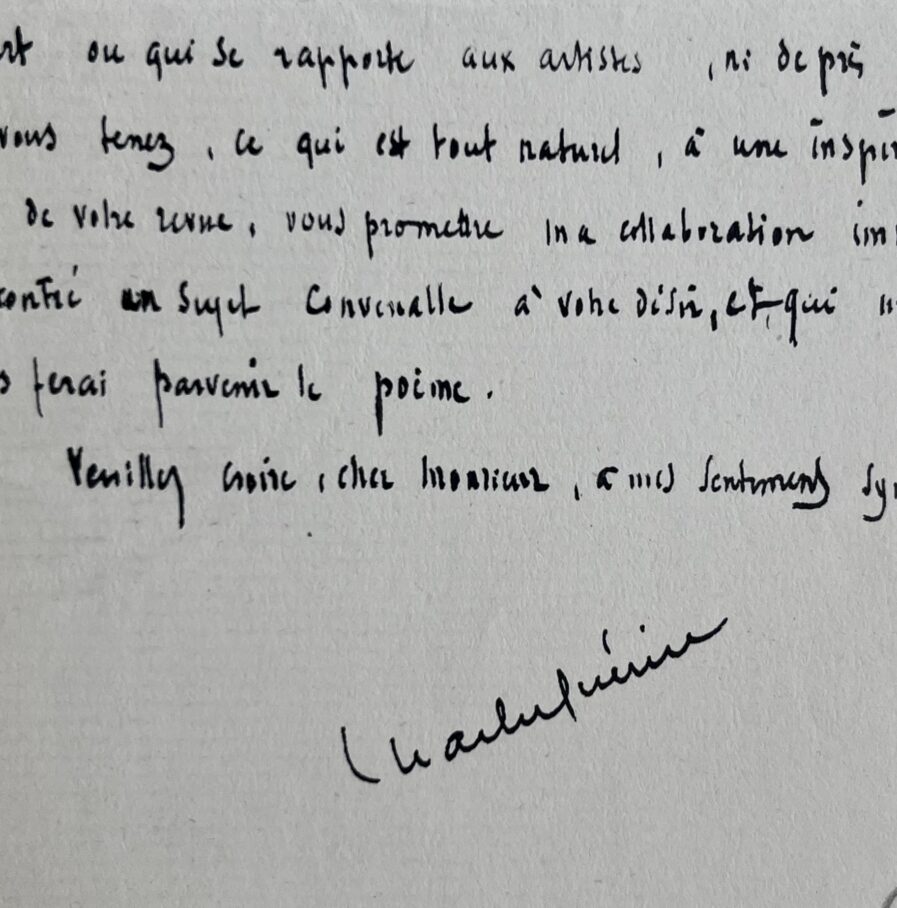 rt ou qui se rapporte aux artistes , ni de près
vous tenez , ce qui est tout naturel , à une inspir
de votre revue , vous promettre ma collaboration im
contré un sujet convenable à votre désir, et qui
s ferai parvenir le poème .
Veuillez croire , cher Monsieur , à mes sentiments sy
Charles Guérin